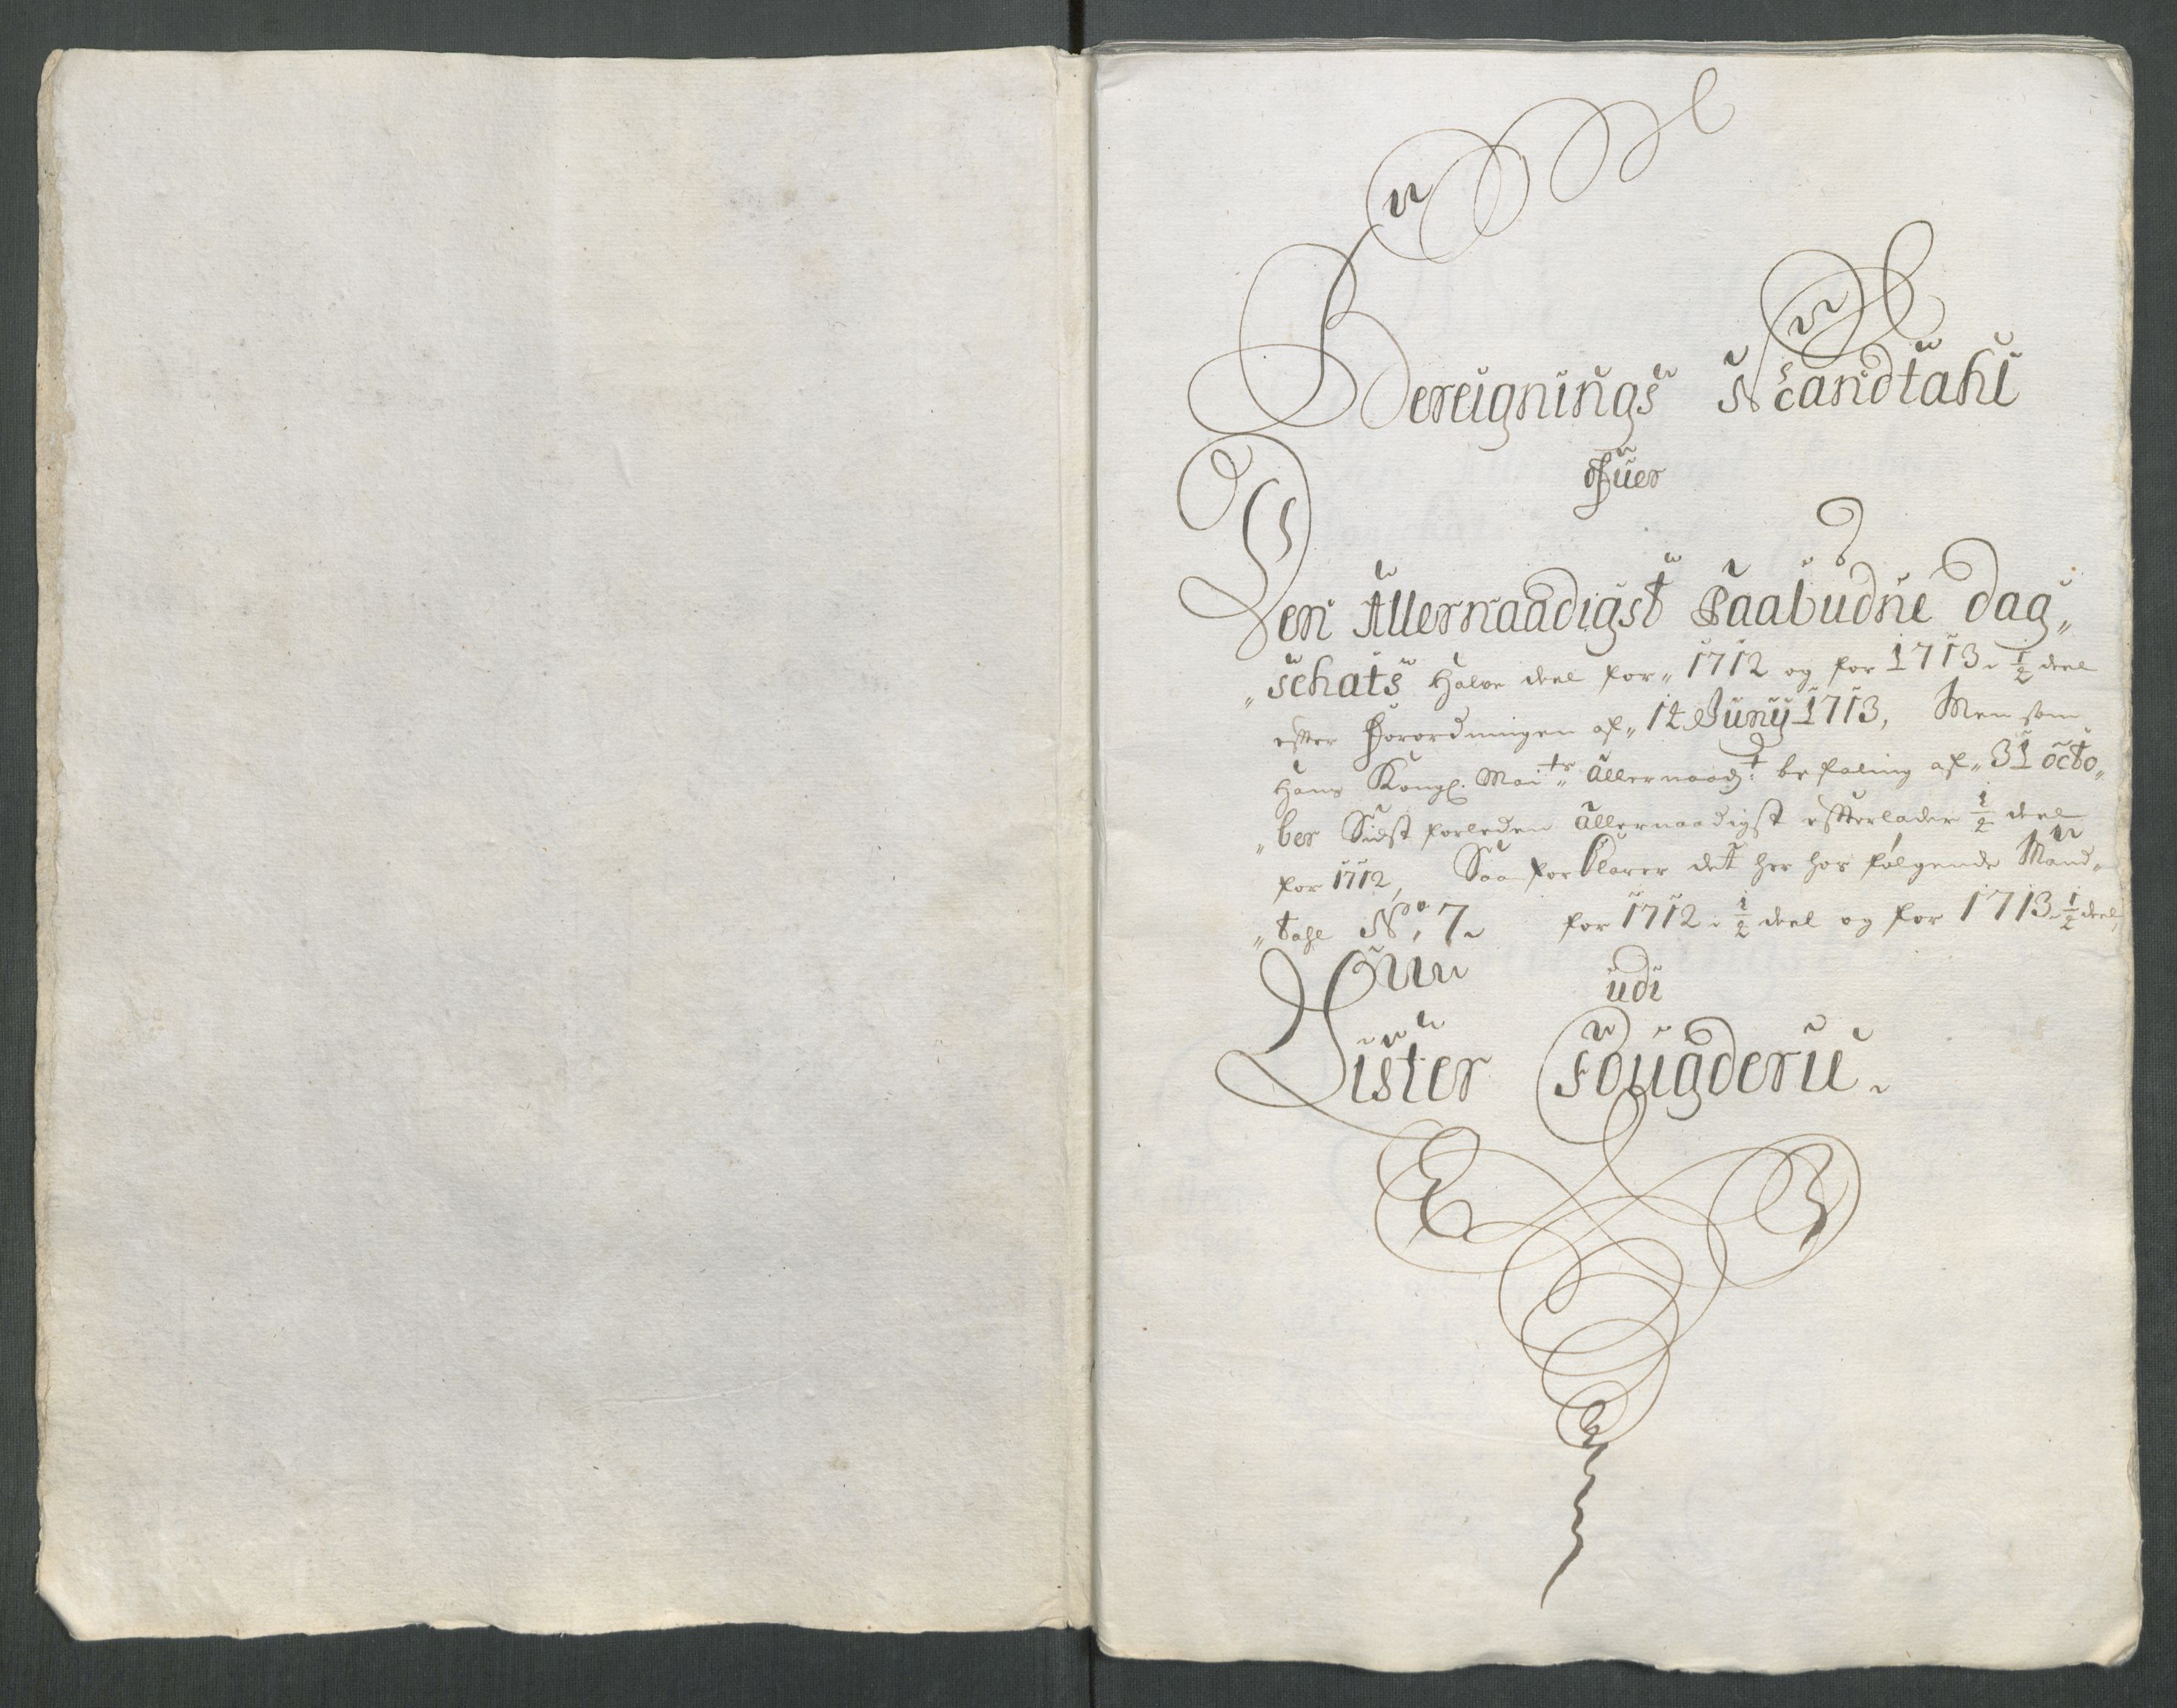 Bereignings Mandtahl
Ofuer
Den Allernaadigst Paabudne dag„
„schats Halve deel for„ 1712 og for 1713. 1/2 deel
efter Forordningen af„ 12 Junÿ 1713, Men som
Hans Kongl. Maitts Allernaadigt befaling af„ 31 octo„
„ber Sidst forleden Allernaadigst efterlader 1/2 deel
for 1712, Saa forklarer det her hos følgende Mand„
„tahl No, 7. for 1712. 1/2 deel og for 1713. 1/2 deel,
udi
Lister Fougderie.